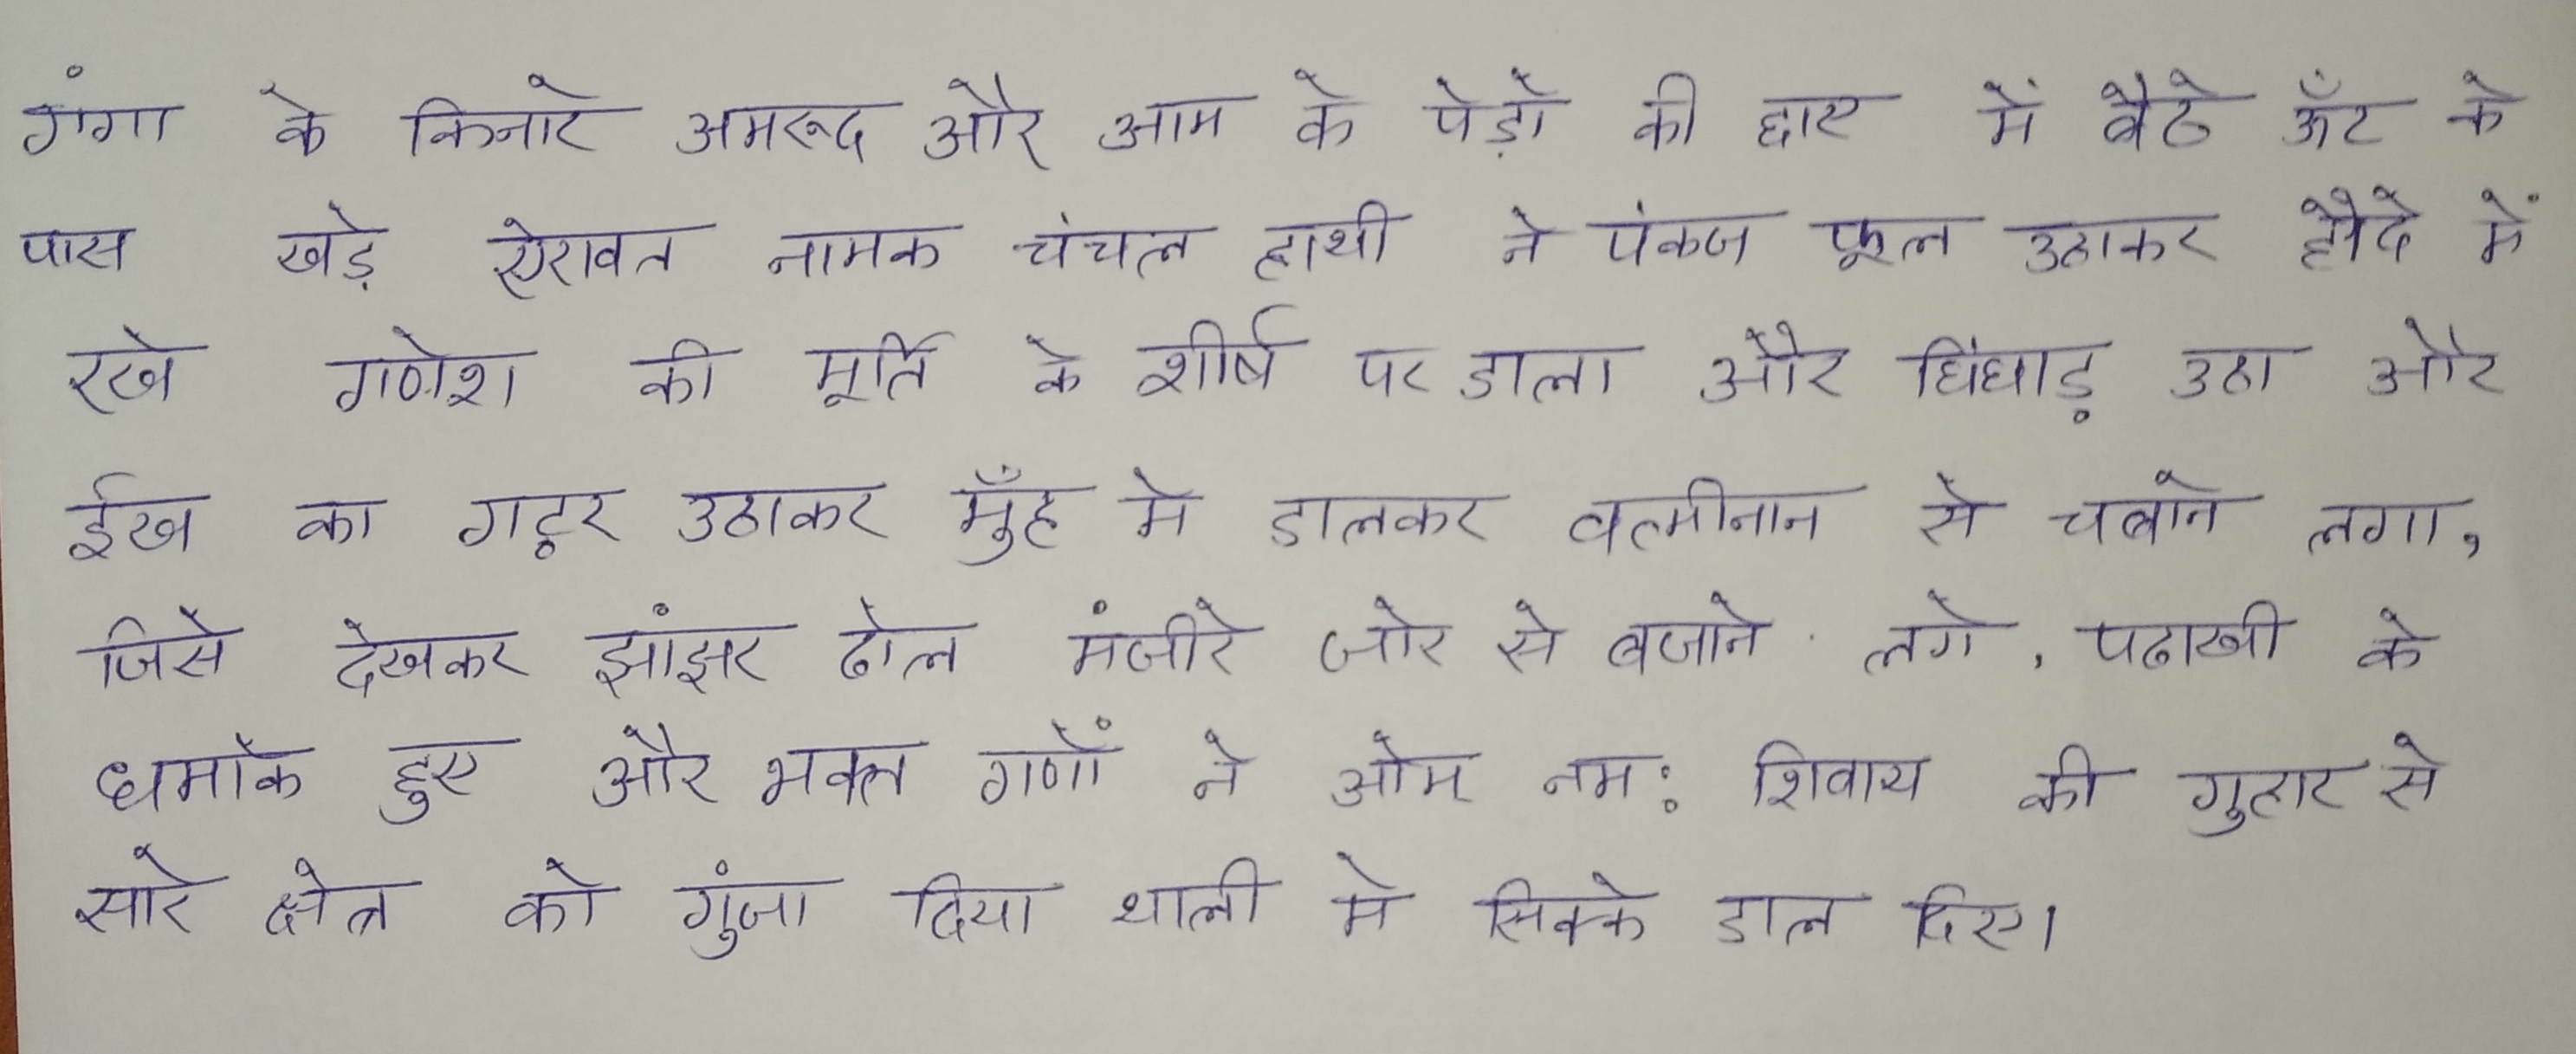 गंगा के किनारे अमरूद और आम के पेड़ों की छाए में बैठे ऊँट के
पास खड़े ऐरावत नामक चंचल हाथी ने पंकज फूल उठाकर हौदे में
रखे गणेश की मूर्ति के शीर्ष पर डाला और घिंघाड़ उठा और
ईख का गट्ठर उठाकर मुँह मे डालकर वत्मीनान से चबाने लगा,
जिसे देखकर झांझर ढोल मंजीरे जोर से बजाने लगे, पढाखी के
धमाके हुए और भक्त गणों ने ओम नम: शिवाय की गुहार से
सारे क्षेत्र को गुंजा दिया थाली मे सिक्के डाल दिए।